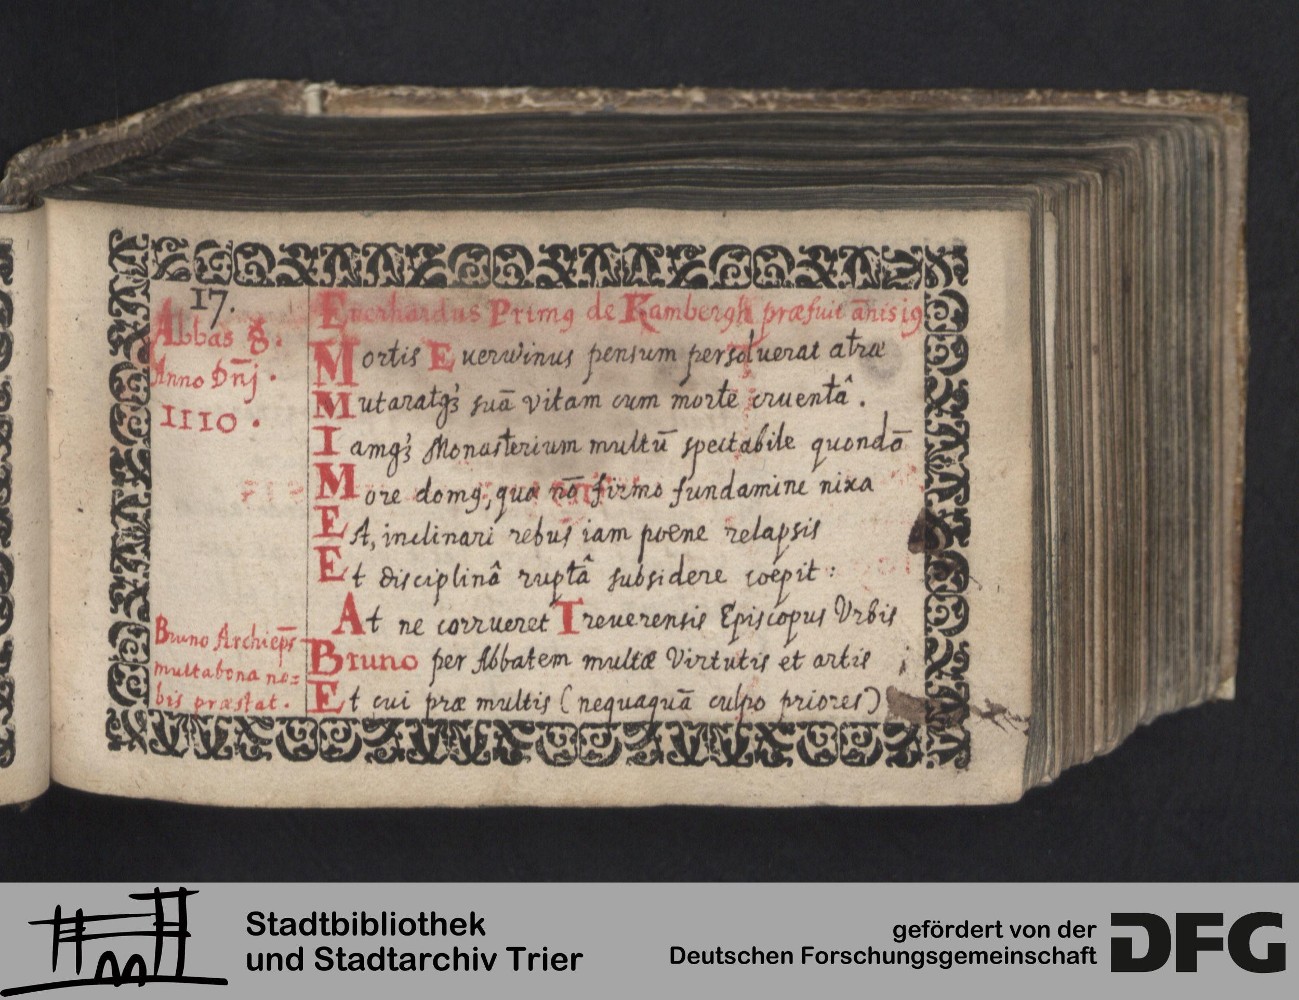 17.
Abbas 8.
Anno Dn̄j.
1110.
Bruno Archiep̄s
multa bona no=
bis præstat.
Everhardus Primꝰ de Kambergh præfuit an̄is 19
Mortis Euerwinus pensum persoluerat atræ
Mutaratqꝫ suā vitam cum morte cruentâ.
Iamqꝫ Monasterium multū spectabile quondā
More domꝰ, quæ nō firmo fundamine nixa
Est, inclinari rebus iam poene relapsis
Et disciplinâ ruptâ subsidere coepit:
At ne corrueret Treuerensis Episcopus Vrbis
Bruno per Abbatem multæ Virtutis et artis;
Et cui præ multis (nequaquā culpo priores)
Stadtbibliothek
und Stadtarchiv Trier
gefördert von der
Deutschen Forschungsgemeinschaft
DFG